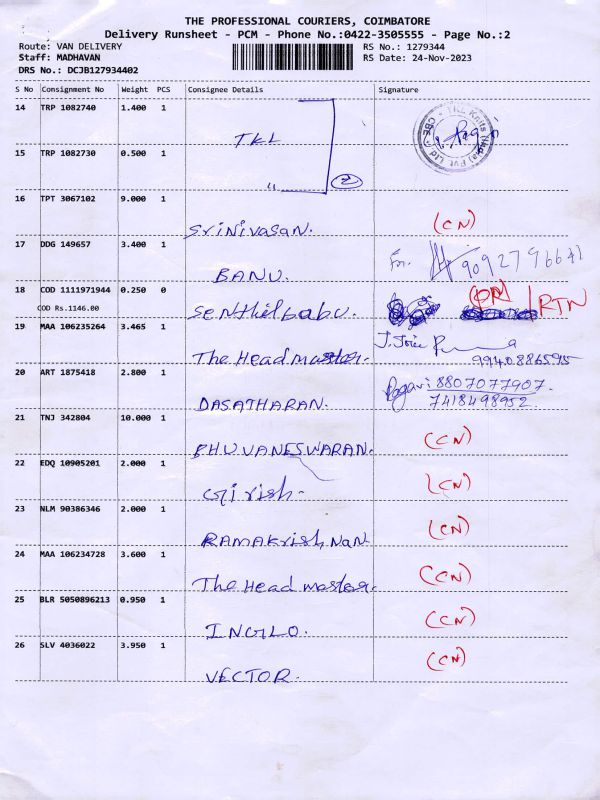 THE PROFESSIONAL COURIERS, COIMBATORE
Delivery Runsheet - PCM - Phone No.:0422-3505555 - Page No.:2
Route: VAN DELIVERY RS No.: 1279344
Staff: MADHAVAN RS Date: 24-Nov-2023
DRS No.: DCJB127934402
S No Consignment No Weight PCS Consignee Details Signature
14 TRP 1082740 1.400 1
TKL
15 TRP 1082730 0.500 1
" 2
TKL Knits (India) Pvt Ltd CBE
16 TPT 3067102 9.000 1
Srinivasan. (CN)
17 DDG 149657 3.400 1
BANU. 9092796631
18 COD 1111971944 0.250 0
COD Rs.1146.00
Senthilbabu. RTN
19 MAA 106235264 3.465 1
The Head master. 9940886595
20 ART 1875418 2.800 1
DASATHARAN. 8807077907
7418498952
21 TNJ 342804 10.000 1
BHUVANESWARAN. (CN)
22 EDQ 10905201 2.000 1
Girish. (CN)
23 NLM 90386346 2.000 1
RAMAKrishNaN (CN)
24 MAA 106234728 3.600 1
The Head master. (CN)
25 BLR 5050896213 0.950 1
INGLO. (CN)
26 SLV 4036022 3.950 1
VECTOR. (CN)